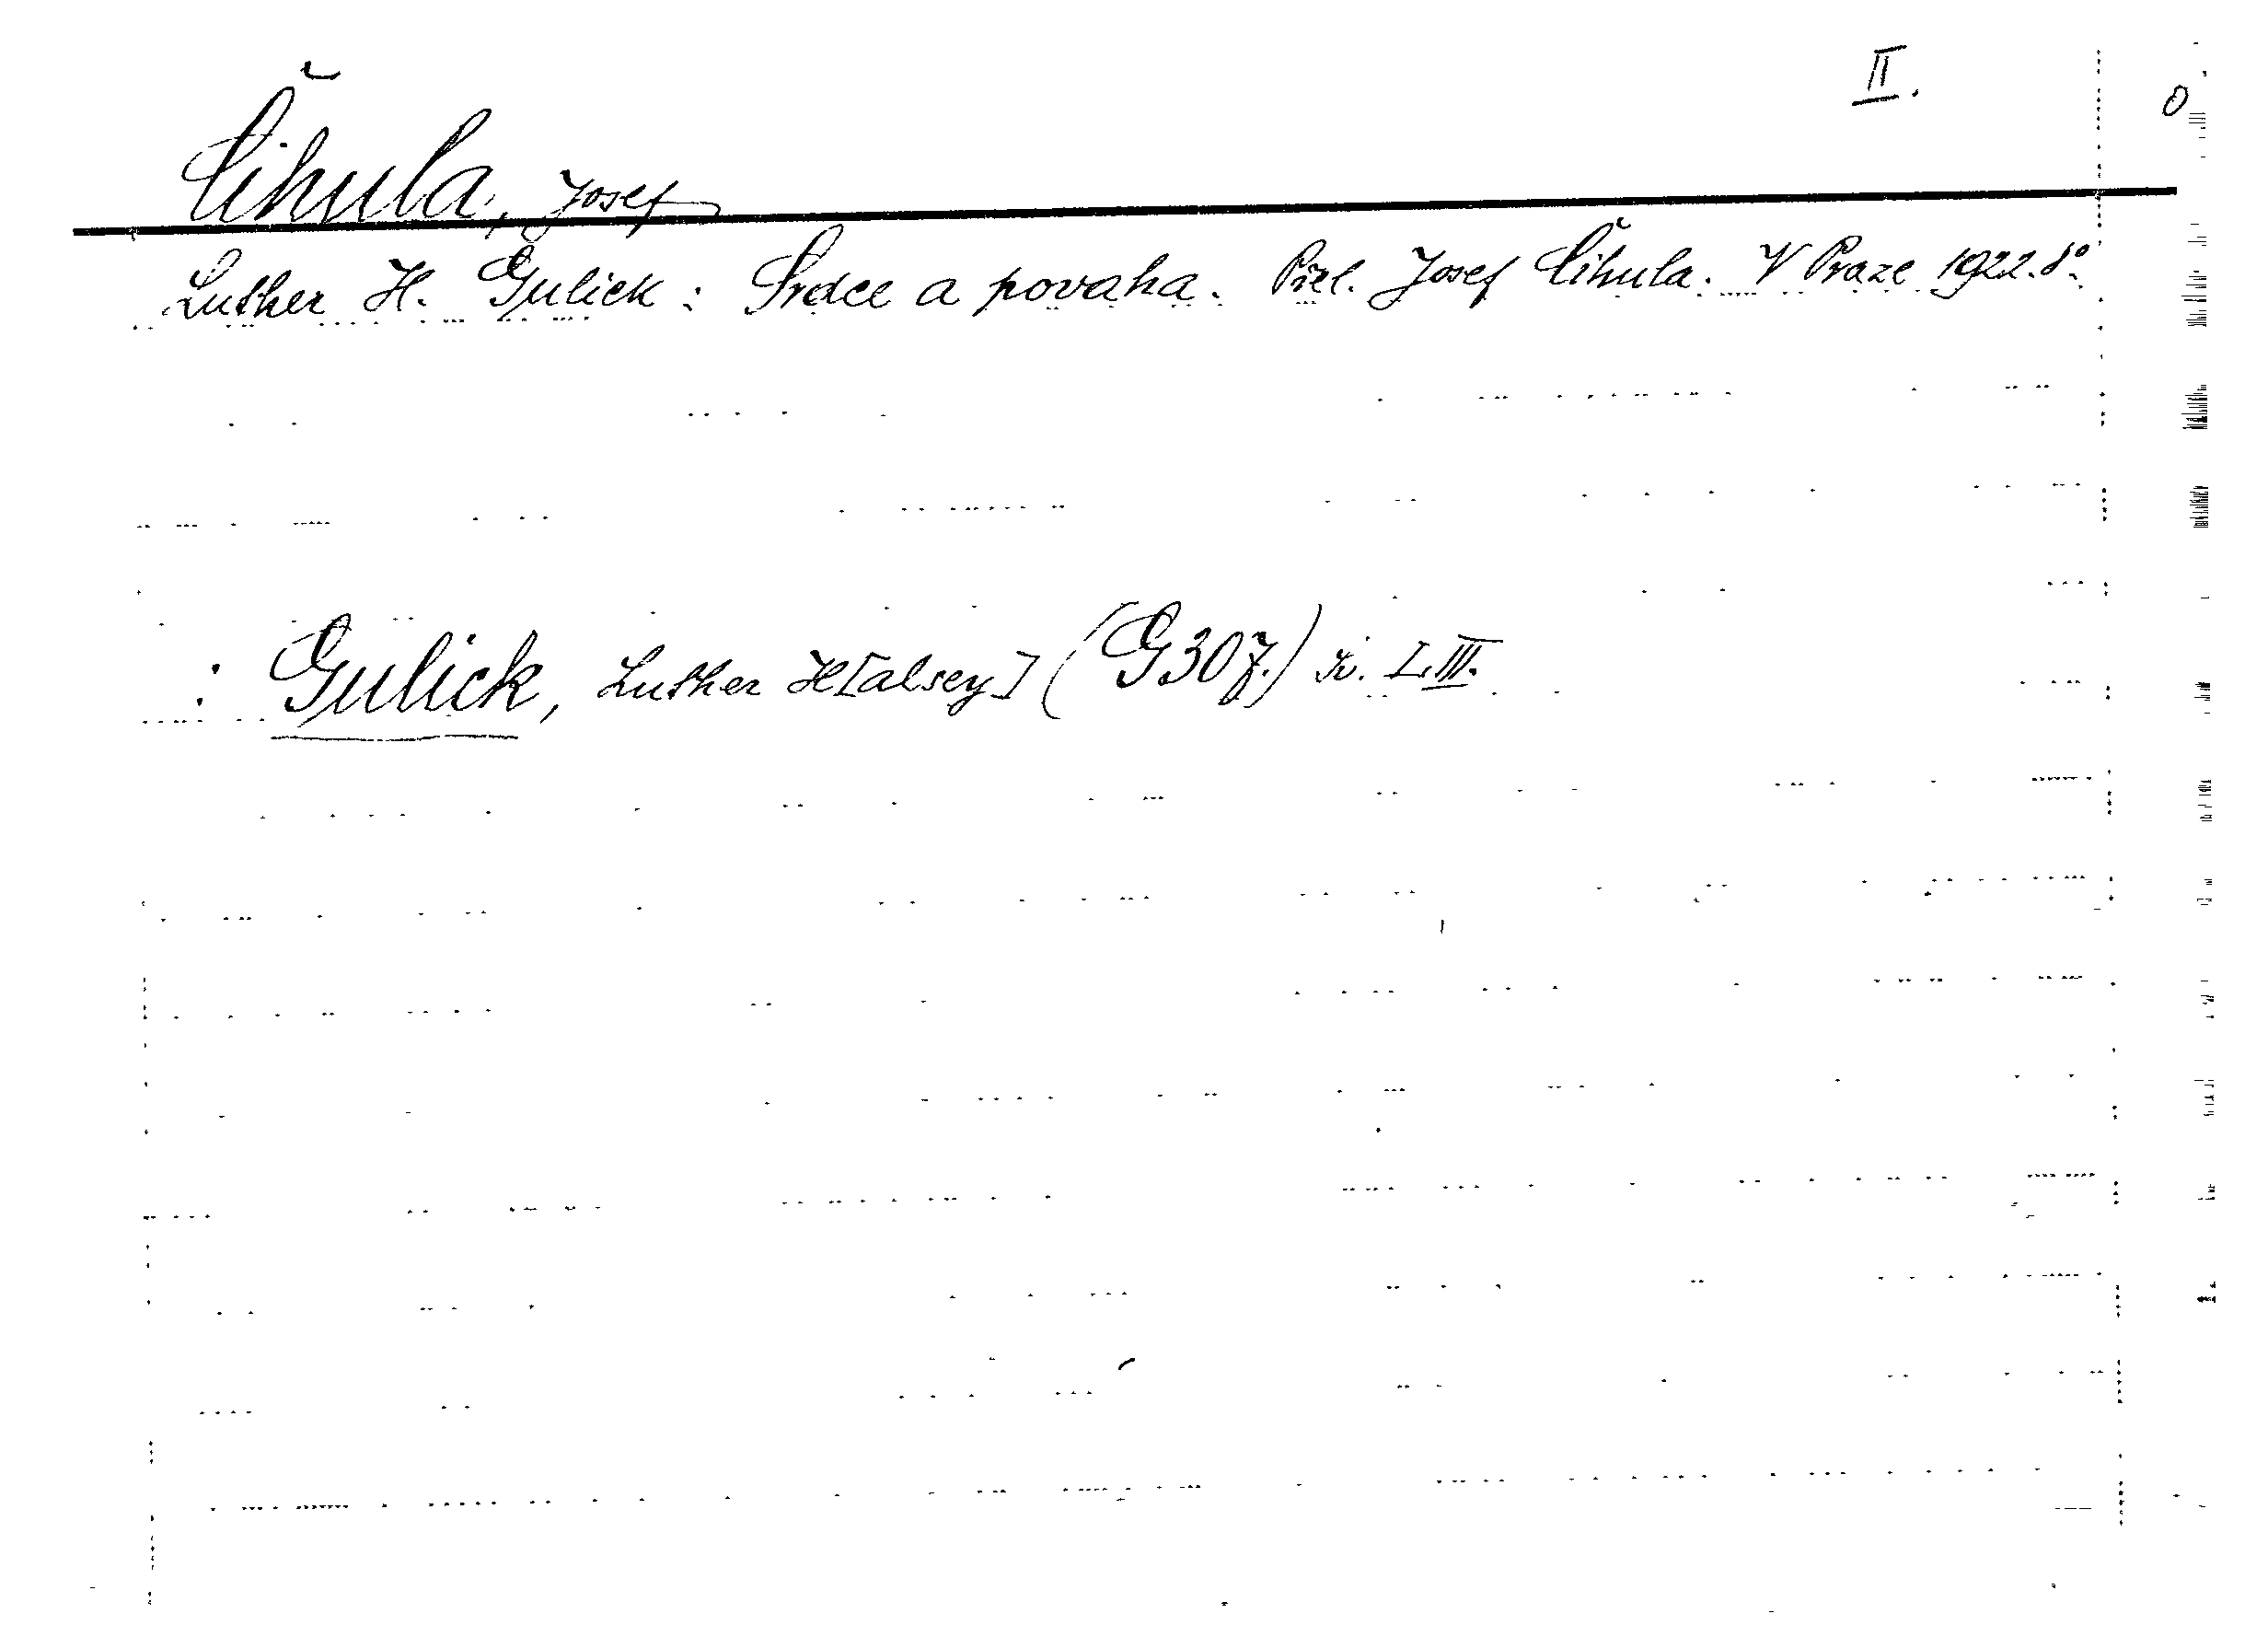 II.
0
Čihula, Josef
Luther H. Gulick: Srdce a povaha. Přel. Josef Čihula. V Praze 1922. 8°.
: Gulick, Luther H[alsey] (G307.) sv. I. III.